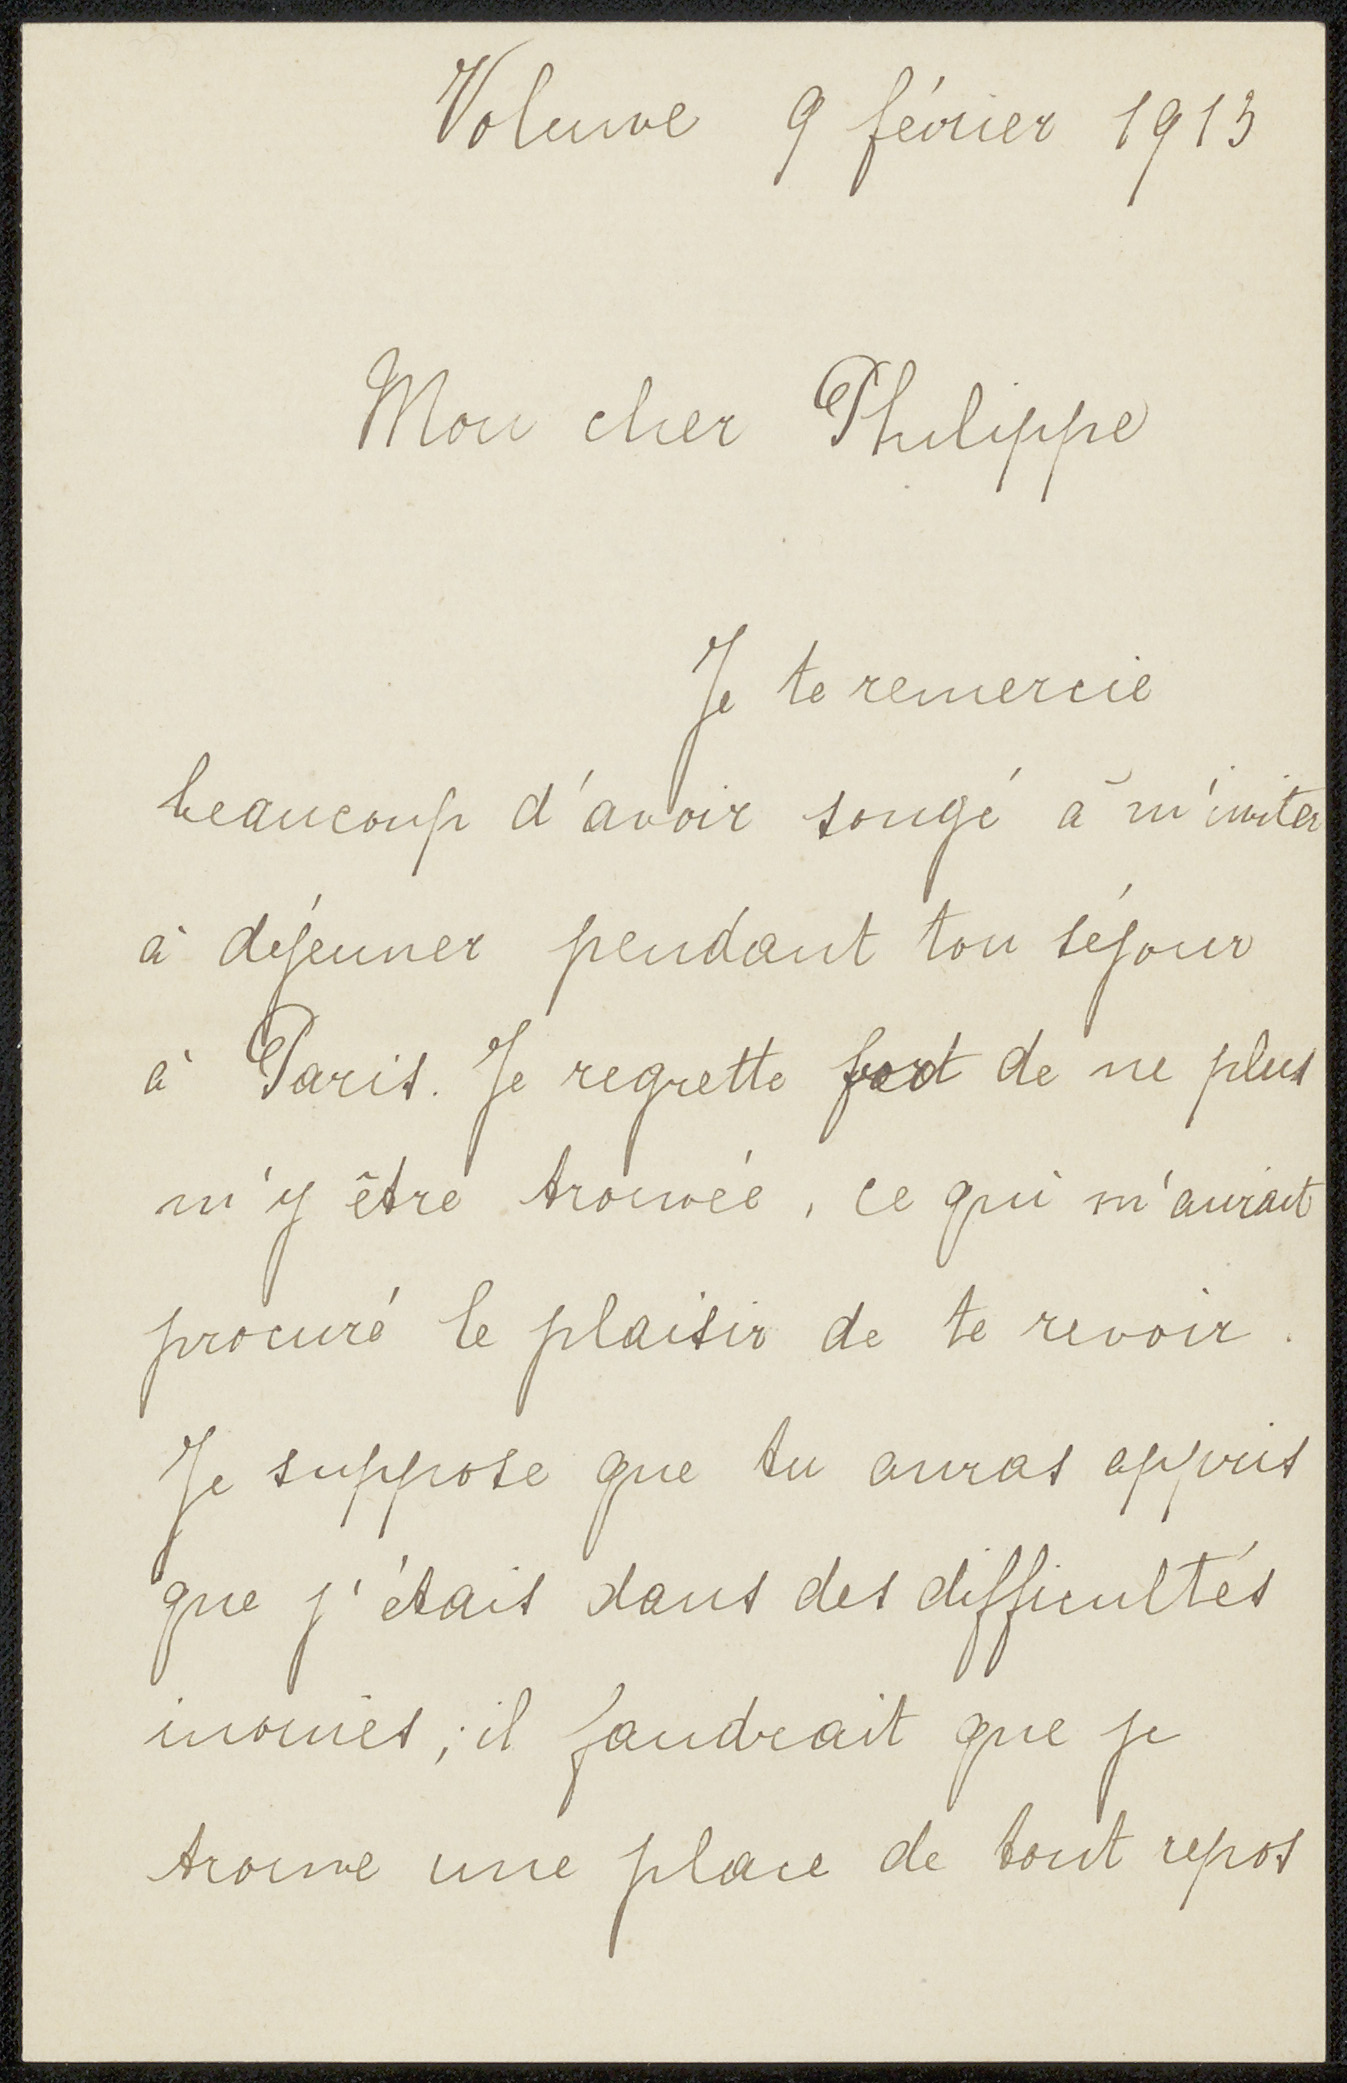 Voluwe 9 février 1913
Mon cher Philippe
Je te remercie
beaucoup d'avoir songé à m'inviter
à déjeuner pendant ton séjour
à Paris. Je regrette fort de ne plus
m'y être trouvée, ce qui m'aurait
procuré le plaisir de te revoir.
Je suppose que tu auras appris
que j'étais dans des difficultés
inouïes ; il faudrait que je
trouve une place de tout repos